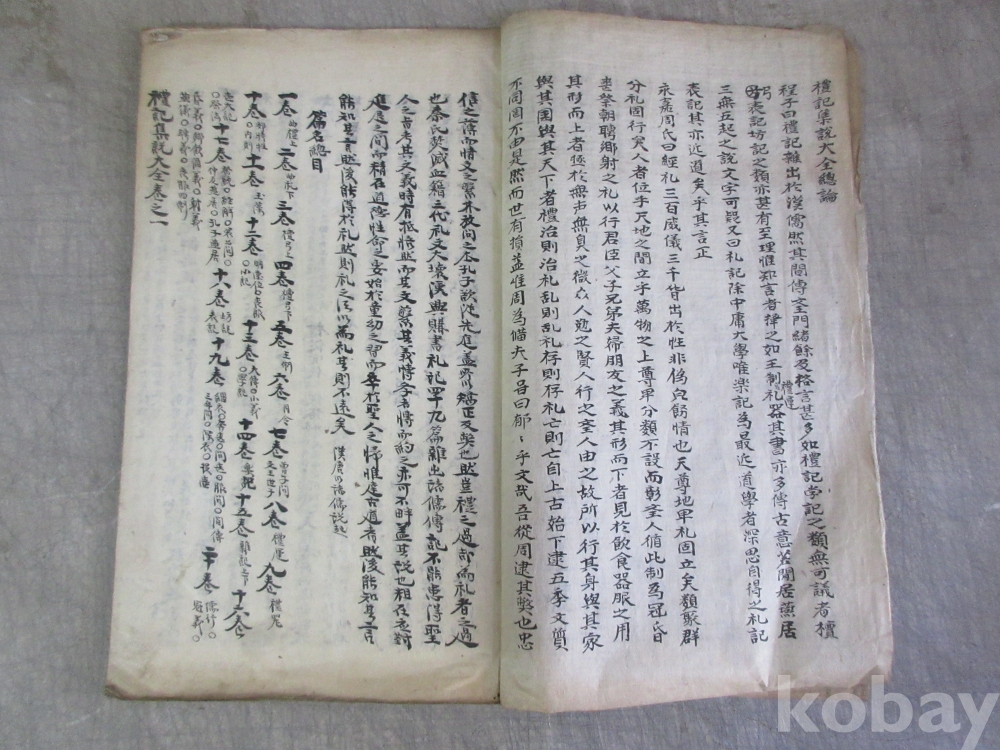 禮記集說大全總論
程子曰禮記雜出於漢儒然其間傳聖門緒餘及格言甚多如禮記學記之類無可議者檀
弓表記坊記之類亦甚有至理惟知言者擇之如王制禮運札器其書亦多傳古意若閒居燕居
三無五起之說文字可疑又曰札記除中庸大學唯樂記為最近道學者深思自得之札記
表記其亦近道矣乎其言正
永嘉周氏曰經札三百威儀三千皆出於性非偽皃飾情也天尊地卑札固立矣類聚群
分札固行矣人者位乎天地之間立乎萬物之上尊卑分類不設而彰聖人循此制為冠昏
喪祭朝聘鄉射之札以行君臣父子兄弟夫婦朋友之義其形而下者見於飲食器服之用
其形而上者極於無声無臭之微眾人勉之賢人行之聖人由之故所以行其身與其家
與其國與其天下者禮治則治札乱則乱札存則存札亡則亡自上古始下逮五季文質
不同固不由是然而世有損益惟周為備夫子曰郁〻乎文哉吾從周逮其弊也忠
信之薄而情文之繁林放問之孔子欲從先進盖所以矯正反弊也然豈禮之過邪而札者之過
也秦氏焚滅典籍三代札文大壞漢興購書札記四十九篇雜出諸儒傳記不能悉得聖
人之旨考其文義時有抵牾然而其文繁其義博學者博而約之亦可不畔盖其說也粗在應對
進退之間而精在道德性命之要始於童幼之習而卒於聖人之歸惟達古道者然後能知其言
能知其言然後能得於札然則札之所以為札其則不遠矣 漢唐以諸儒說起
篇名總目
一卷 曲禮上 二卷 曲禮下 三卷 檀弓上 四卷 檀弓下 五卷 王制 六卷 月令 七卷 曾子問 文王世子 八卷 禮運 九卷 禮器
十卷 郊特牲 內則 十一卷 玉藻 十二卷 明堂位 喪服 小記 十三卷 大傳 少義 學記 十四卷 樂記 十五卷 雜記上下 十六卷
喪大記 祭法 十七卷 祭義 祭統 經解 哀公問 仲尼燕居 孔子閒居 十八卷 坊記 表記 十九卷 緇衣 奔喪 問喪 服問 間傳 三年問 深衣 投壺 二十卷 儒行
冠義 昏義 鄉飲酒義 射義 燕義 聘義 喪服四制
禮記集說大全卷之一
kobay